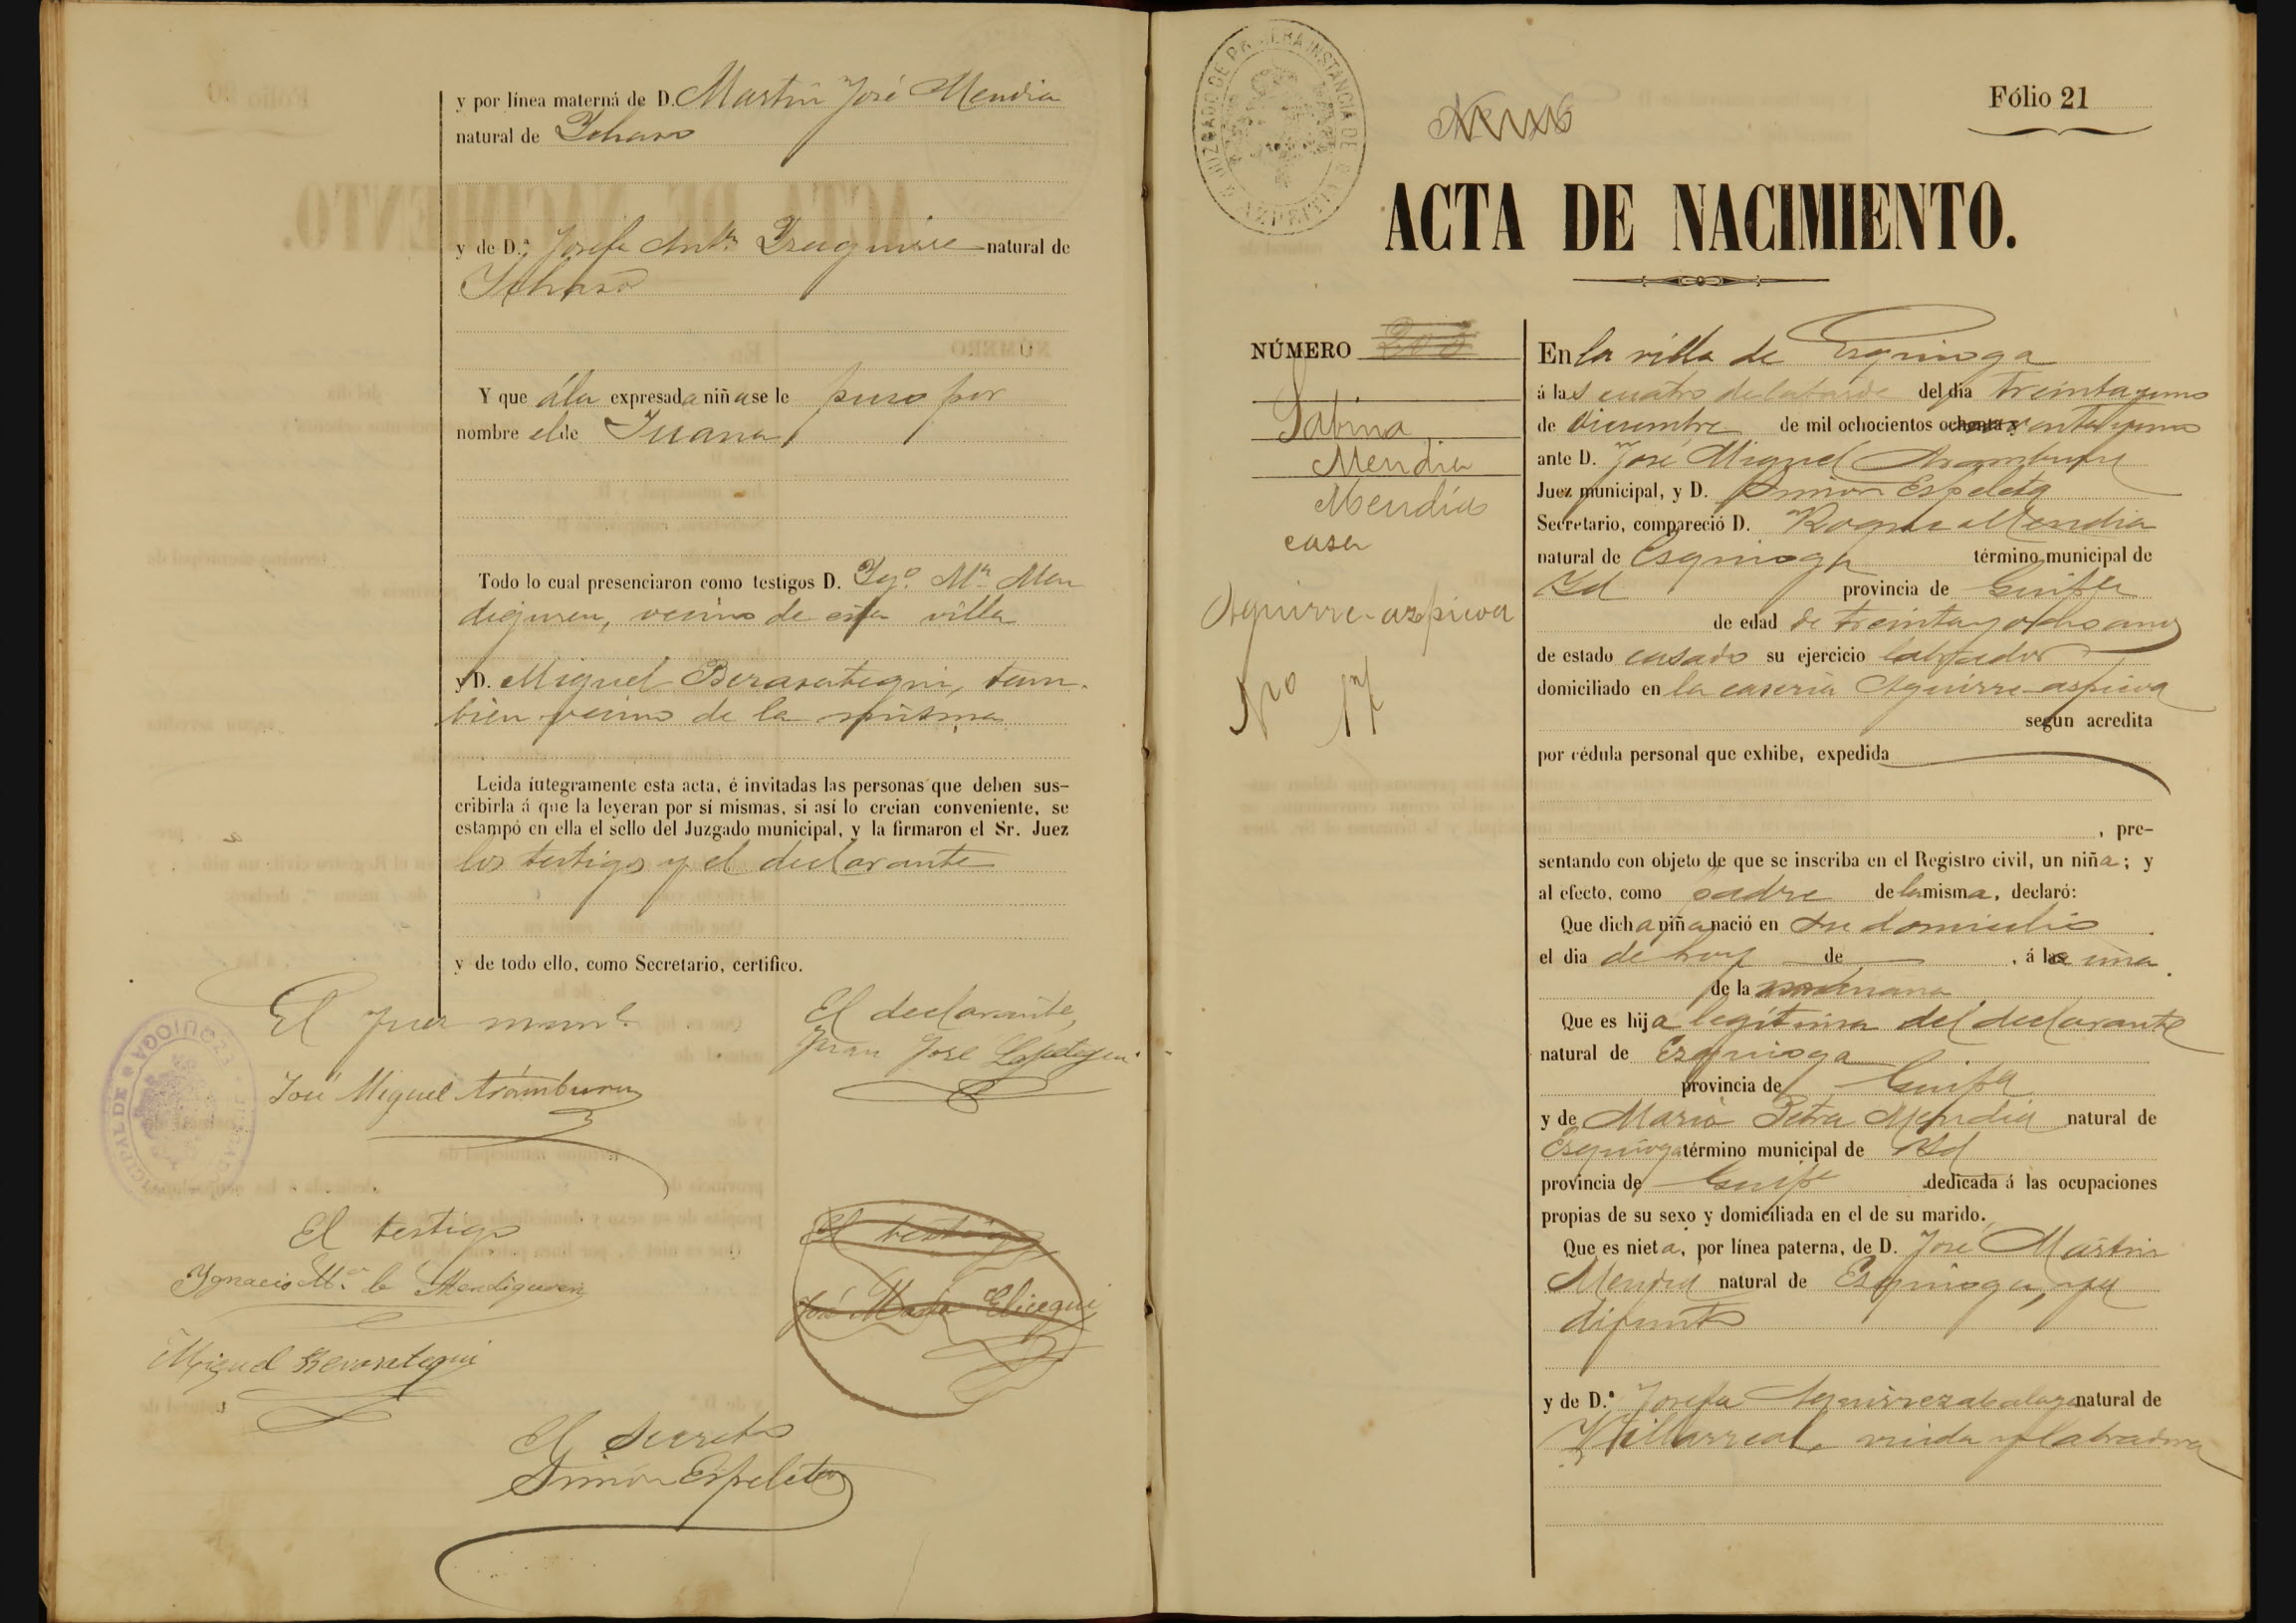 y por línea materna de D. Martín José Mendia
natural de Ichaso
y de D.ª Josefa Ant.ª Izaguirre natural de
Ichaso
Y que á la expresada niña se le puso por
nombre el de Juana
Todo lo cual presenciaron como testigos D. Ygº. Mª Men
diguren, vecino de esta villa
y D. Miguel Berasategui, tam-
bien vecino de la misma
Leida íntegramente esta acta, é invitadas las personas que deben sus-
cribirla á que la leyeran por sí mismas, si así lo creian conveniente, se
estampó en ella el sello del Juzgado municipal, y la firmaron el Sr. Juez
los testigos y el declarante
y de todo ello, como Secretario, certifico.
El Juez munl.
José Miguel Aramburu
El declarante,
Juan José
El testigo
Ignacio Mª. de Mendiguren
Miguel Berasategui
El testigo
José María Elicegui
El Secretº
Simón Espeleta
JUZGADO DE PRIMERA INSTANCIA DE AZPEITIA
Fólio 21
ACTA DE NACIMIENTO.
NÚMERO
Sabina
Mendia
Mendia
casa
Aguirre-azpicoa
Nº 17
En la villa de Ezquioga
á las cuatro de la tarde del dia treinta y uno
de Diciembre de mil ochocientos ochenta y noventa y uno
ante D. José Miguel Aramburu
Juez municipal, y D. Simon Espeleta
Secretario, compareció D. Roque Mendia
natural de Esquioga término municipal de
Id provincia de Guipª
de edad de treinta y ocho años
de estado casado su ejercicio labrador
domiciliado en la caseria Aguirre-aspicoa
según acredita
por cédula personal que exhibe, expedida
, pre-
sentando con objeto de que se inscriba en el Registro civil, un niña; y
al efecto, como padre de la misma, declaró:
Que dicha niña nació en su domicilio
el dia de hoy de , á la una
de la mañana
Que es hija legítima del declarante
natural de Ezquioga
provincia de Guipª
y de Maria Petra Mendia natural de
Esquioga término municipal de Id
provincia de Guipª dedicada á las ocupaciones
propias de su sexo y domiciliada en el de su marido.
Que es nieta, por línea paterna, de D. José Martin
Mendia natural de Esquioga, ya
difunto
y de D.ª Josefa Aguirrezabalaga natural de
Villarreal, viuda y labradora